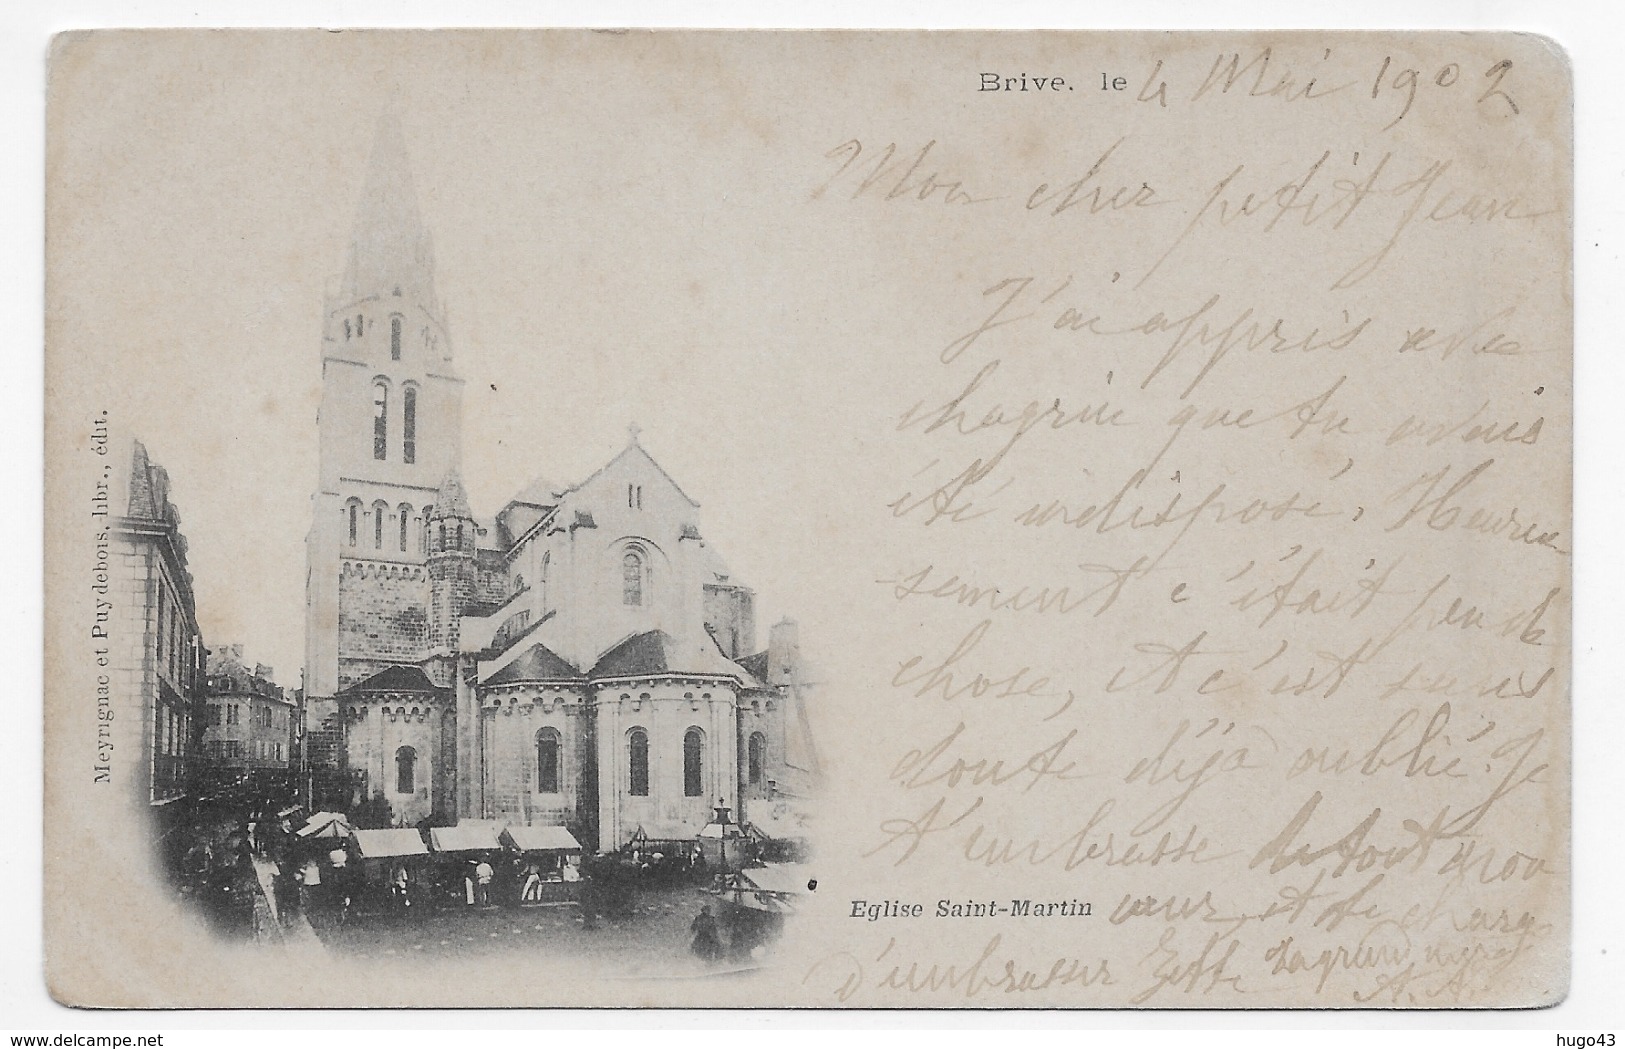 Brive, le 4 Mai 1902
Mon cher petit Jean
J'ai appris avec
chagrin que tu avais
été indisposé. Heureu-
sement c'était peu de
chose, et c'est sans
doute déjà oublié. Je
t'embrasse de tout mon
cœur, et te charge
d'embrasser
A. A.
Eglise Saint-Martin
Meyrignac et Puydebois, libr., édit.
www.delcampe.net
hugo43